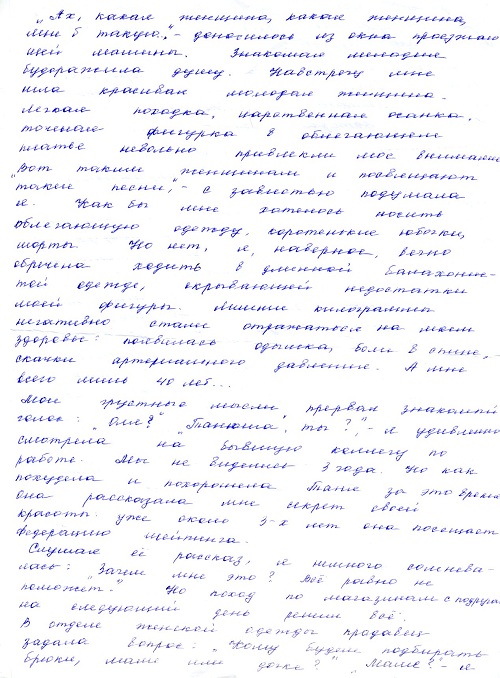 „Ах, какая женщина, какая женщина,
мне б такую," - доносилось из окна проезжаю-
щей машины. Знакомая мелодия
будоражила душу. Навстречу мне
шла красивая молодая женщина.
Легкая походка, царственная осанка,
точеная фигурка в облегающем
платье невольно привлекли мое внимание
„Вот таким женщинам и посвящают
такие песни," - с завистью подумала
я. Как бы мне хотелось носить
облегающую одежду, коротенькие юбочки,
шорты. Но нет, я, наверное, вечно
обречена ходить в длинной балахонис-
той одежде, скрывающей недостатки
моей фигуры. Лишние килограммы
негативно стали отражаться на моем
здоровье: появилась одышка, боли в спине, -
скачки артериального давления. А мне
всего лишь 40 лет...
Мои грустные мысли прервал знакомый
голос: „Оля?" „Танюша, ты?", - я удивленно
смотрела на бывшую коллегу по
работе. Мы не виделись 3 года. Но как
похудела и похорошела Таня за это время
она рассказала мне секрет своей
красоты: уже около 3-х лет она посещает
Федерацию шейпинга.
Слушая её рассказ, я немного сомнева-
лась: „Зачем мне это? Всё равно не
поможет." Но поход по магазинам с подругой
на следующий день решил всё.
В отделе женской одежды продавец
задала вопрос: „Кому будем подбирать
брюки, маме или дочке?" „Маме?" - я